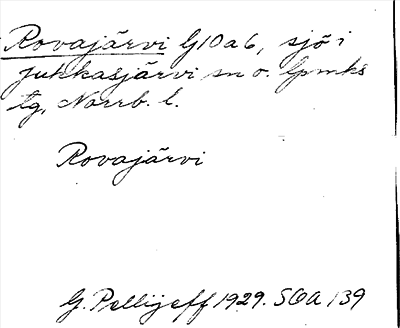 Rovajärvi G10a6, sjö i
Jukkasjärvi sn o. lpmks
tg, Norrb. l.
Rovajärvi
G. Pellijeff 1929. SOA 139